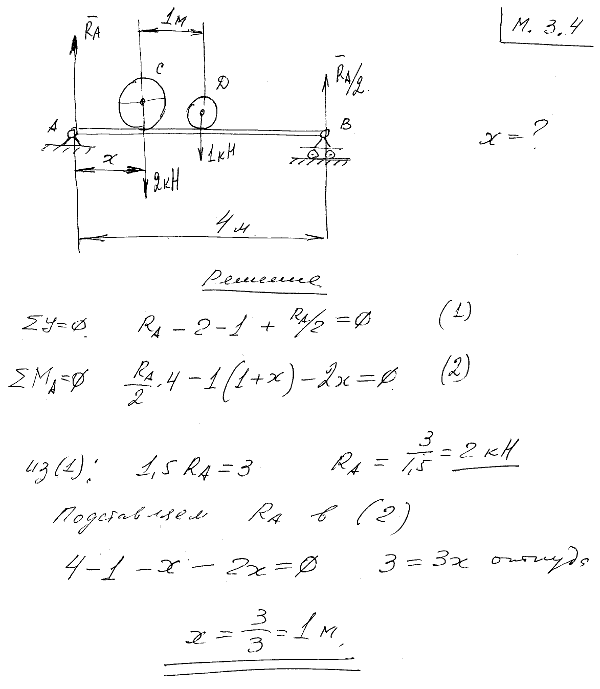 М. 3.4
1м
R̅A
C
D
R̅A/2
A
B
x = ?
x
2кН
1кН
4 м
Решение
ΣY=0. RA − 2 − 1 + RA/2 = 0 (1)
ΣMA=0 RA/2 · 4 − 1(1+x) − 2x = 0. (2)
из(1): 1,5 RA = 3 RA = 3/1,5 = 2 кН
Подставляем RA в (2)
4 − 1 − x − 2x = 0 3 = 3x откуда
x = 3/3 = 1 м.